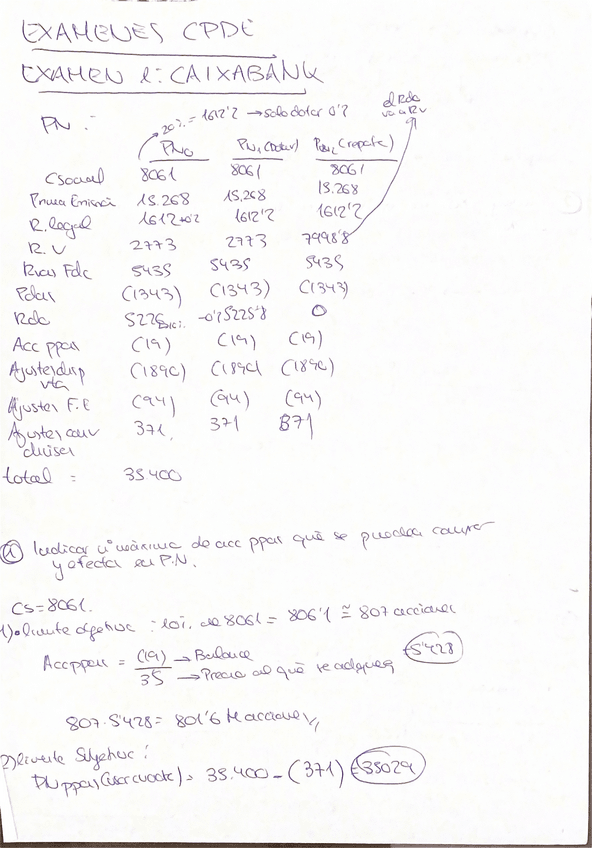 EXAMENES CPDE
EXAMEN 1: CAIXABANK
PN:
20% = 1612'2 → solo dotar 0'2
el Rdo va a RV
PN0 PN1 (Dotar) PN2 (reparte)
CSocial 8061 8061 8061
Prima Emisión 15.268 15.268 15.268
R. legal 1612+0'2 1612'2 1612'2
R.V 2773 2773 7998'8
Rvas Fdc 5435 5435 5435
Pdas (1343) (1343) (1343)
Rdo 5226 -0'2 5225'8 0
Acc ppas (19) (19) (19)
Ajustes disp vta (1890) (1890) (1890)
Ajustes F.E (94) (94) (94)
Ajustes conv divisa 371 371 371
total = 35.400
① Indicar nº máximo de acc ppas que se pueden comprar
y efecto en P.N.
CS = 8061.
1) • límite objetivo: 10% de 8061 = 806'1 ≅ 807 acciones
Acc ppas = (19) → Balance
3'5 → Precio al que se adquiere
5'428
807 - 5'428 = 801'6 M acciones
2) límite Subjetivo:
PN ppas = 35.400 - (371) = 35029